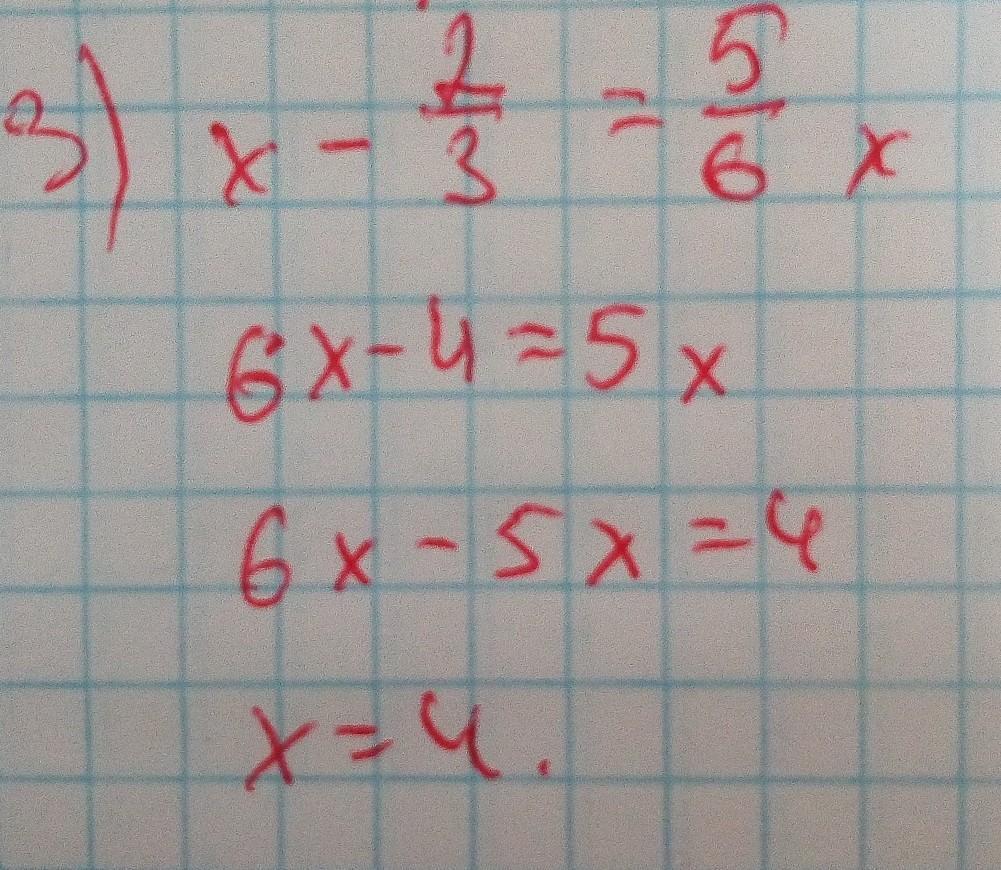 3) x - 2/3 = 5/6 x
6x - 4 = 5x
6x - 5x = 4
x = 4.